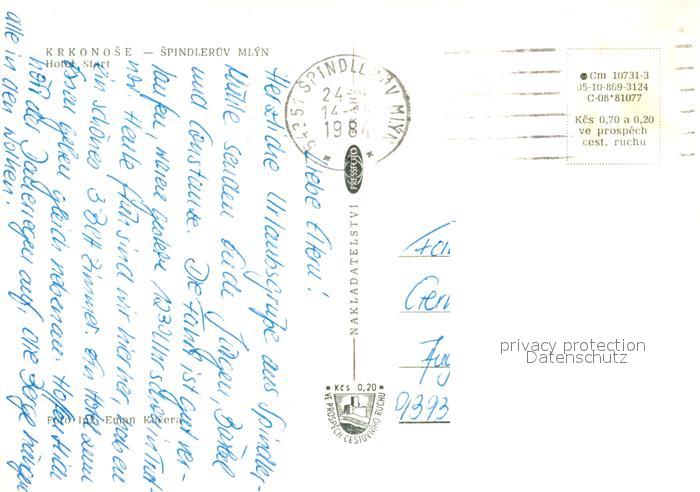 KRKONOŠE — ŠPINDLERŮV MLÝN
Hotel Start
Liebe Eltern!
Herzliche Urlaubsgrüße aus Spindler-
Mühle senden Euch Jürgen, Bärbel
und Constanze. Die Fahrt ist gut ver-
laufen, waren gestern schon in
Heute früh sind wir hierher, haben
ein schönes 3 Bett Zimmer im Hotel zum
Essen gehen gleich nebenan. Hoffentlich
hört der Dauerregen auf, die Berge hängen
alle in den Wolken.
Foto Ing. Eman Kučera
543 51 ŠPINDLERŮV MLÝN
1984
PRESSFOTO
NAKLADATELSTVÍ
Kčs 0,20
VE PROSPĚCH CESTOVNÍHO RUCHU
Cm 10731-3
05-10-869-3124
C-08*81077
Kčs 0,70 a 0,20
ve prospěch
cest. ruchu
Fam
Gern
Aug
9393
privacy protection
Datenschutz